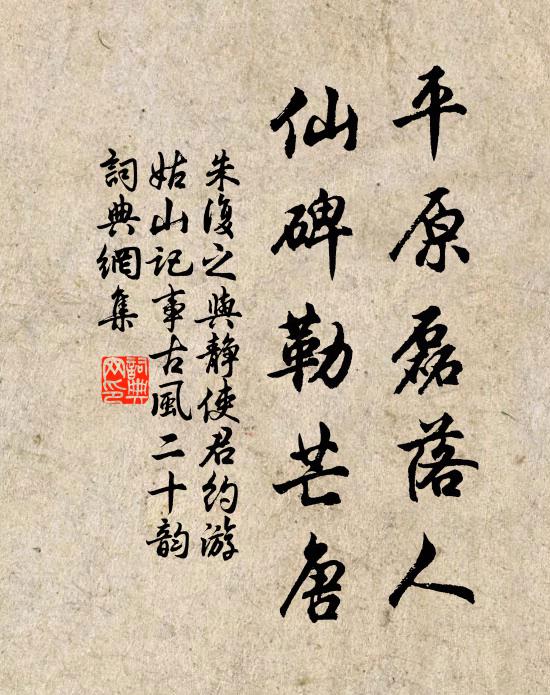 平原磊落人
仙碑勒芒唐
朱復之與靜使君約游
姑山記事古風二十韵
詞典網集
詞典
网印